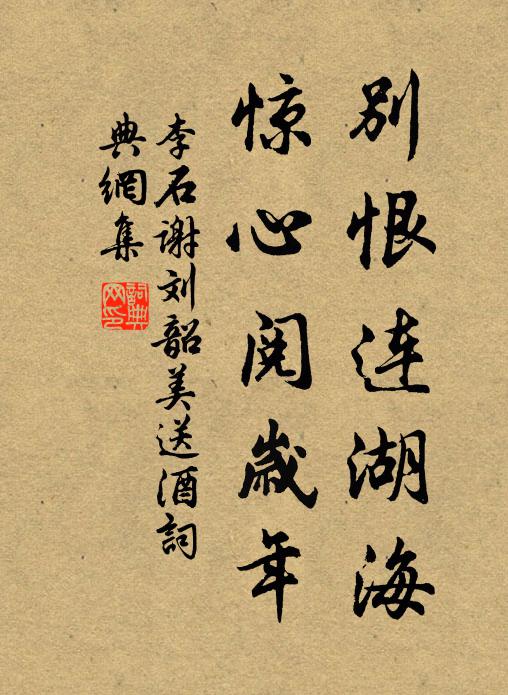 别恨连湖海
惊心阅岁年
李石谢刘韶美送酒词
典網集
詞典
网印